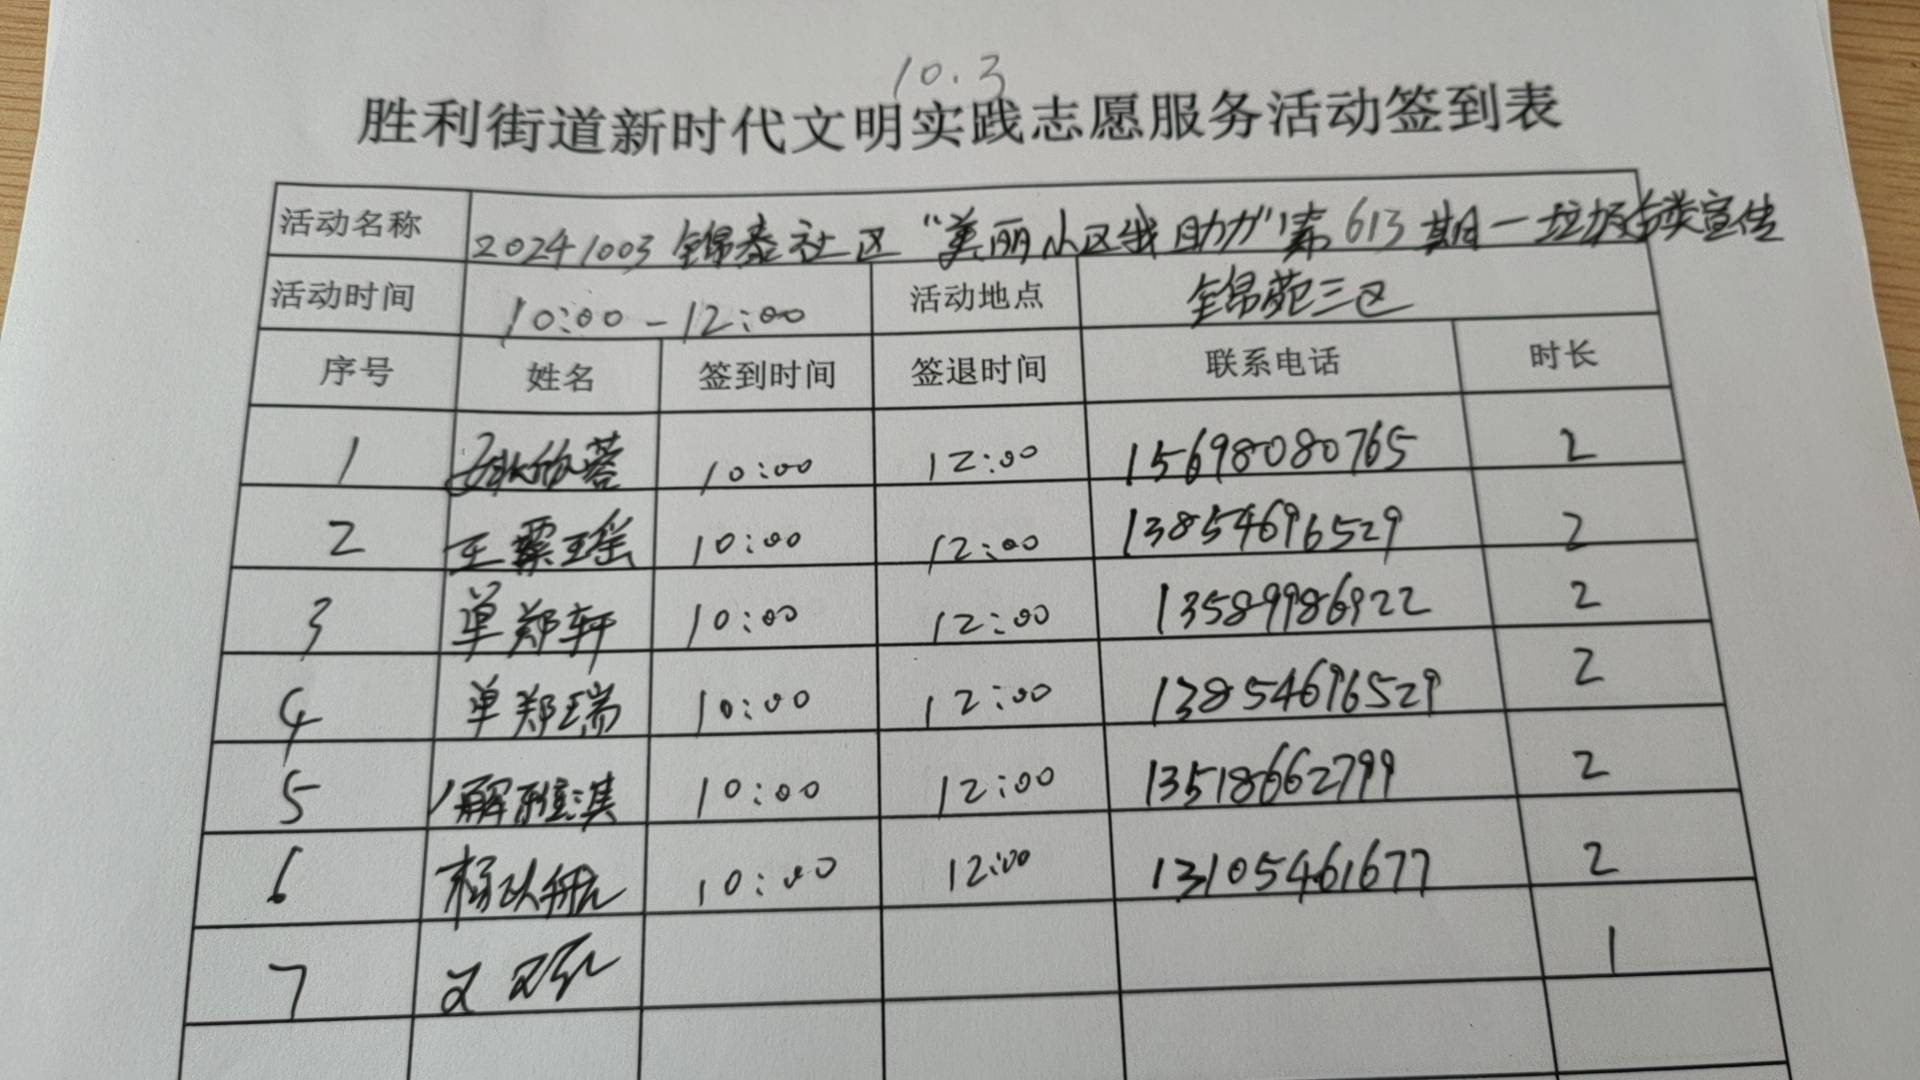 10.3
胜利街道新时代文明实践志愿服务活动签到表
活动名称 20241003 锦泰社区“美丽小区我助力”第613期—垃圾分类宣传
活动时间 10:00-12:00 活动地点 锦苑三区
序号 姓名 签到时间 签退时间 联系电话 时长
1 10:00 12:00 15698080765 2
2 王霖瑶 10:00 12:00 13854696529 2
3 单郑轩 10:00 12:00 13589986922 2
4 单郑瑞 10:00 12:00 13854696529 2
5 解雅淇 10:00 12:00 13518662799 2
6 10:00 12:00 13105461677 2
7 1